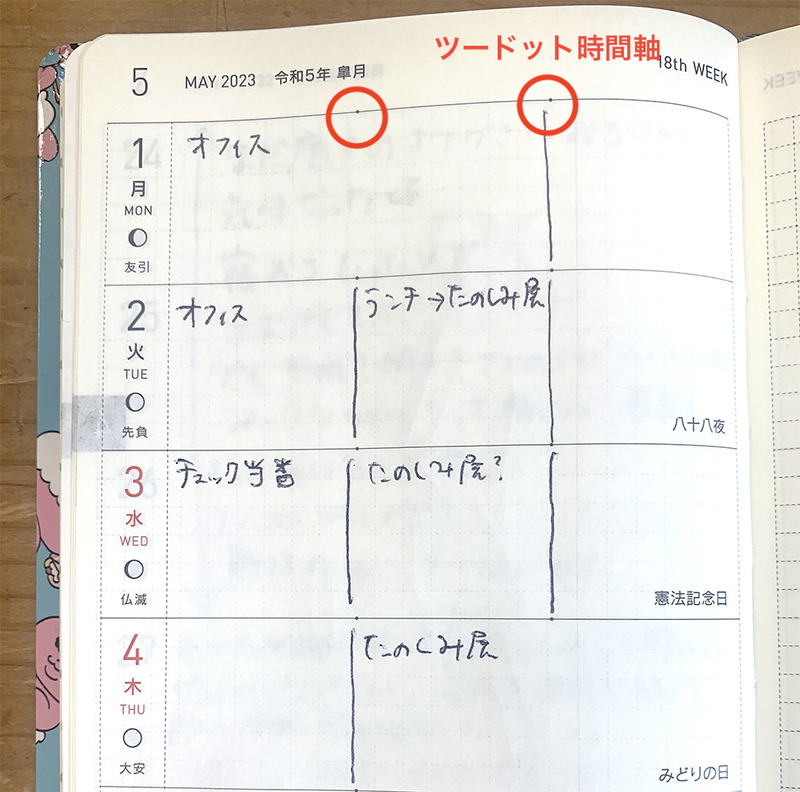 ツードット時間軸
5 MAY 2023 令和5年 皐月 18th WEEK
1
月
MON
友引
オフィス
2
火
TUE
先負
オフィス
ランチ→たのしみ展
八十八夜
3
水
WED
仏滅
チェック当番
たのしみ展?
憲法記念日
4
木
THU
大安
たのしみ展
みどりの日